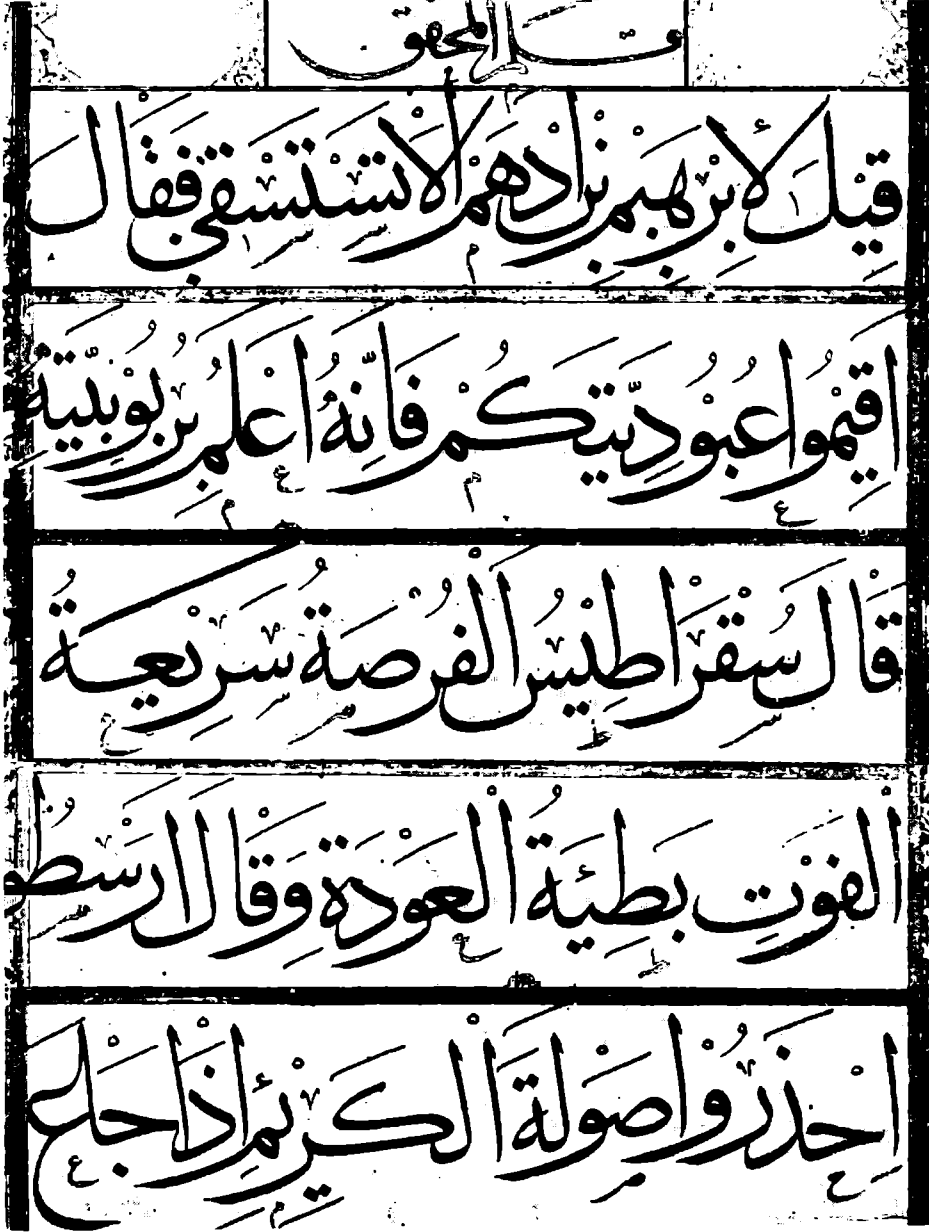 قلم المحقق
قِيْلَ لِأَبْرٰهِيْم بْن اَدْهَمْ اَلَا تَسْتَسْقِي فَقَالَ
اَقِيْمُوا عُبُوْدِيَّتَكُمْ فَاِنَّهُ اَعْلَمُ بِرُبُوْبِيَّتِهِ
قَالَ سُقْرَاطِيْسُ الْفُرْصَةُ سَرِيْعَةُ
الْفَوْتِ بَطِيْئَةُ الْعَوْدَةِ وَقَالَ اَرَسْطُو
اِحْذَرُوْا صَوْلَةَ الْكَرِيْمِ اِذَا جَاعَ